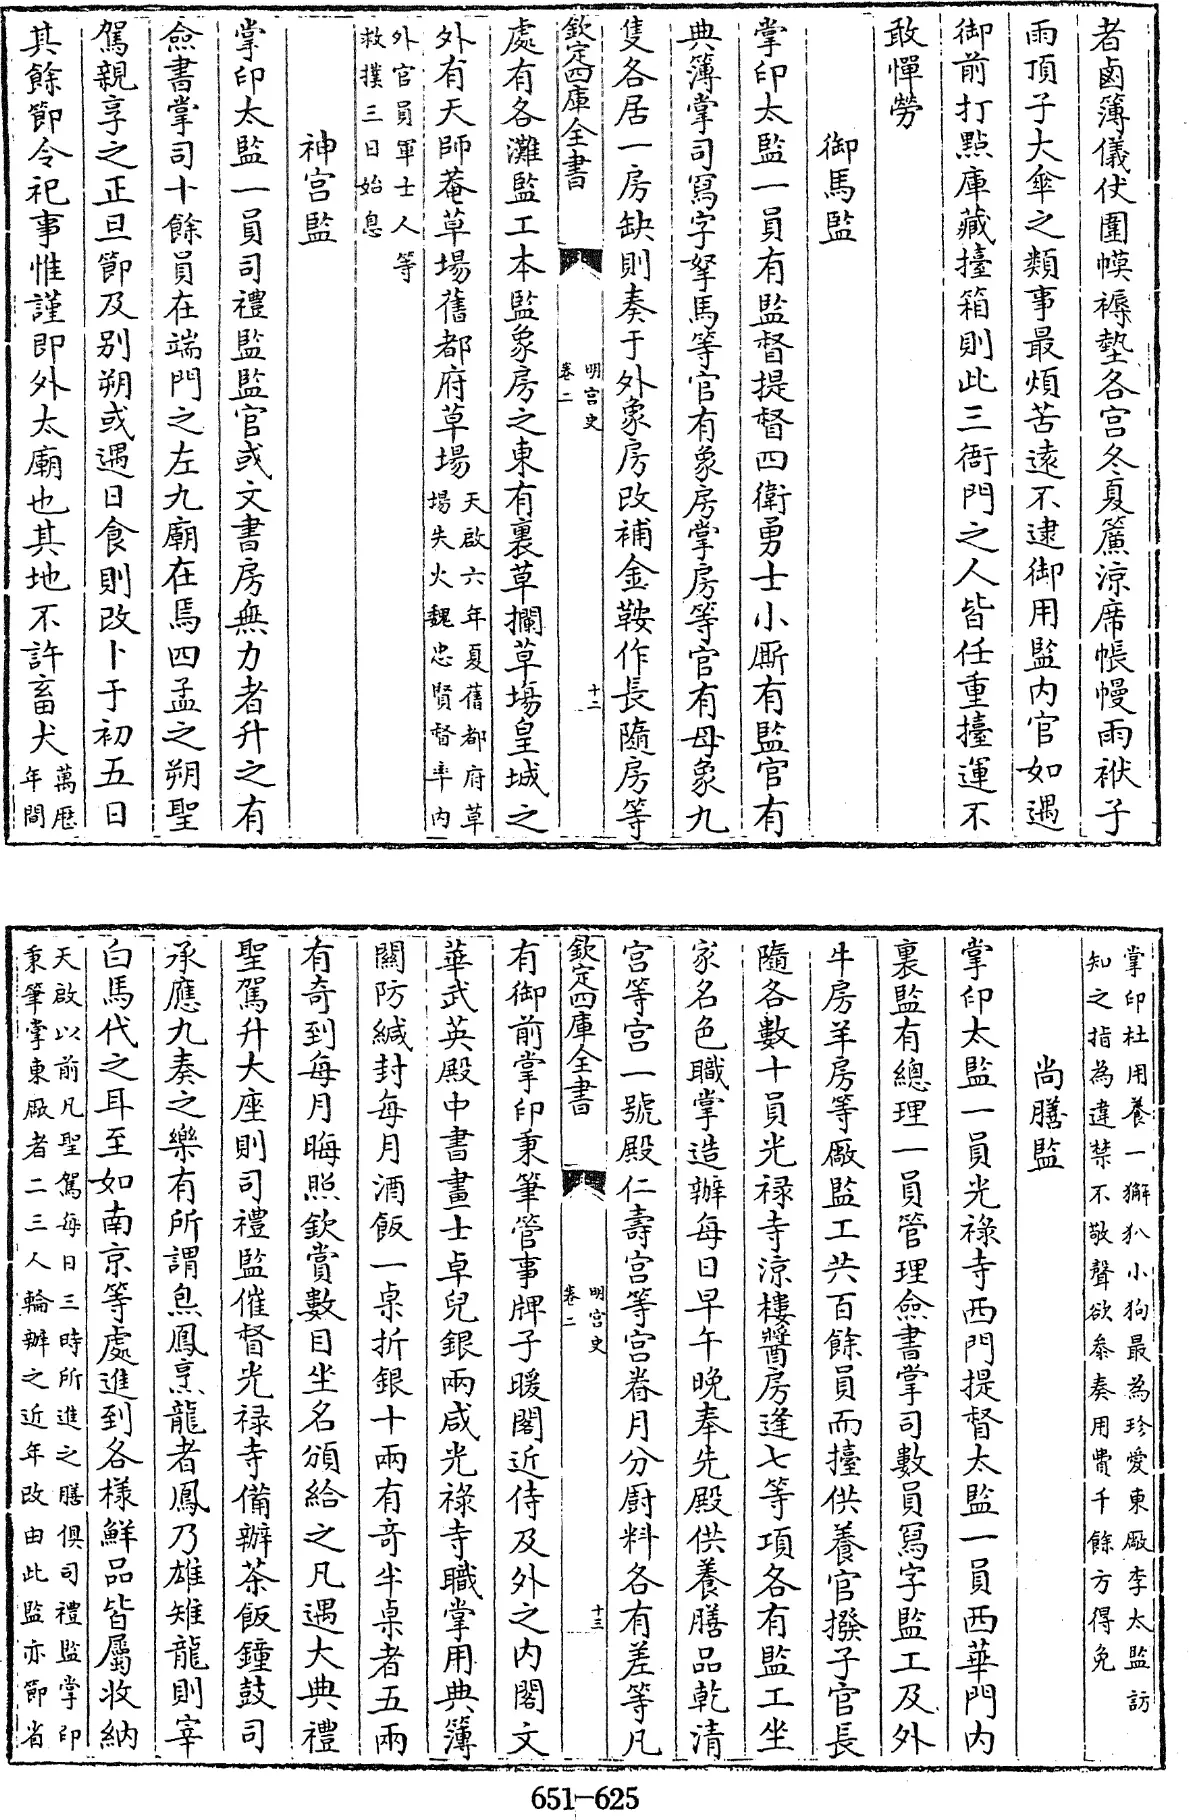 者鹵簿儀仗圍幙褥墊各宫冬夏簾涼席帳幔雨袱子
雨頂子大傘之類事最煩苦遠不逮御用監内官如遇
御前打點庫藏擡箱則此三衙門之人皆任重擡運不
敢憚勞
御馬監
掌印太監一員有監督提督四衛勇士小厮有監官有
典簿掌司寫字拏馬等官有象房掌房等官有母象九
隻各居一房缺則奏于外象房改補金鞍作長隨房等
欽定四庫全書
明宫史
卷二
十二
處有各灘監工本監象房之東有裏草攔草場皇城之
外有天師菴草場舊都府草場
天啟六年夏舊都府草
場失火魏忠賢督率内
外官員軍士人等
救撲三日始息
神宫監
掌印太監一員司禮監監官或文書房無力者升之有
僉書掌司十餘員在端門之左九廟在焉四孟之朔聖
駕親享之正旦節及别朔或遇日食則改卜于初五日
其餘節令祀事惟謹即外太廟也其地不許畜犬
萬厯
年間
掌印杜用養一獬𤜶小狗最為珍愛東厰李太監訪
知之指為違禁不敬聲欲叅奏用費千餘方得免
尚膳監
掌印太監一員光祿寺西門提督太監一員西華門内
裏監有總理一員管理僉書掌司數員寫字監工及外
牛房羊房等厰監工共百餘員而擡供養官撥子官長
隨各數十員光禄寺涼樓醬房逢七等項各有監工坐
家名色職掌造辦每日早午晚奉先殿供養膳品乾清
宫等宫一號殿仁壽宫等宫眷月分厨料各有差等凡
欽定四庫全書
明宫史
卷二
十三
有御前掌印秉筆管事牌子暖閣近侍及外之内閣文
華武英殿中書畫士卓兒銀兩咸光祿寺職掌用典簿
關防緘封每月酒飯一桌折銀十兩有竒半桌者五兩
有奇到每月晦照欽賞數目坐名頒給之凡遇大典禮
聖駕升大座則司禮監催督光禄寺備辦茶飯鐘鼓司
承應九奏之樂有所謂炰鳳烹龍者鳳乃雄雉龍則宰
白馬代之耳至如南京等處進到各樣鮮品皆屬收納
天啟以前凡聖駕每日三時所進之膳俱司禮監掌印
秉筆掌東厰者二三人輪辦之近年改由此監亦節省
651-625